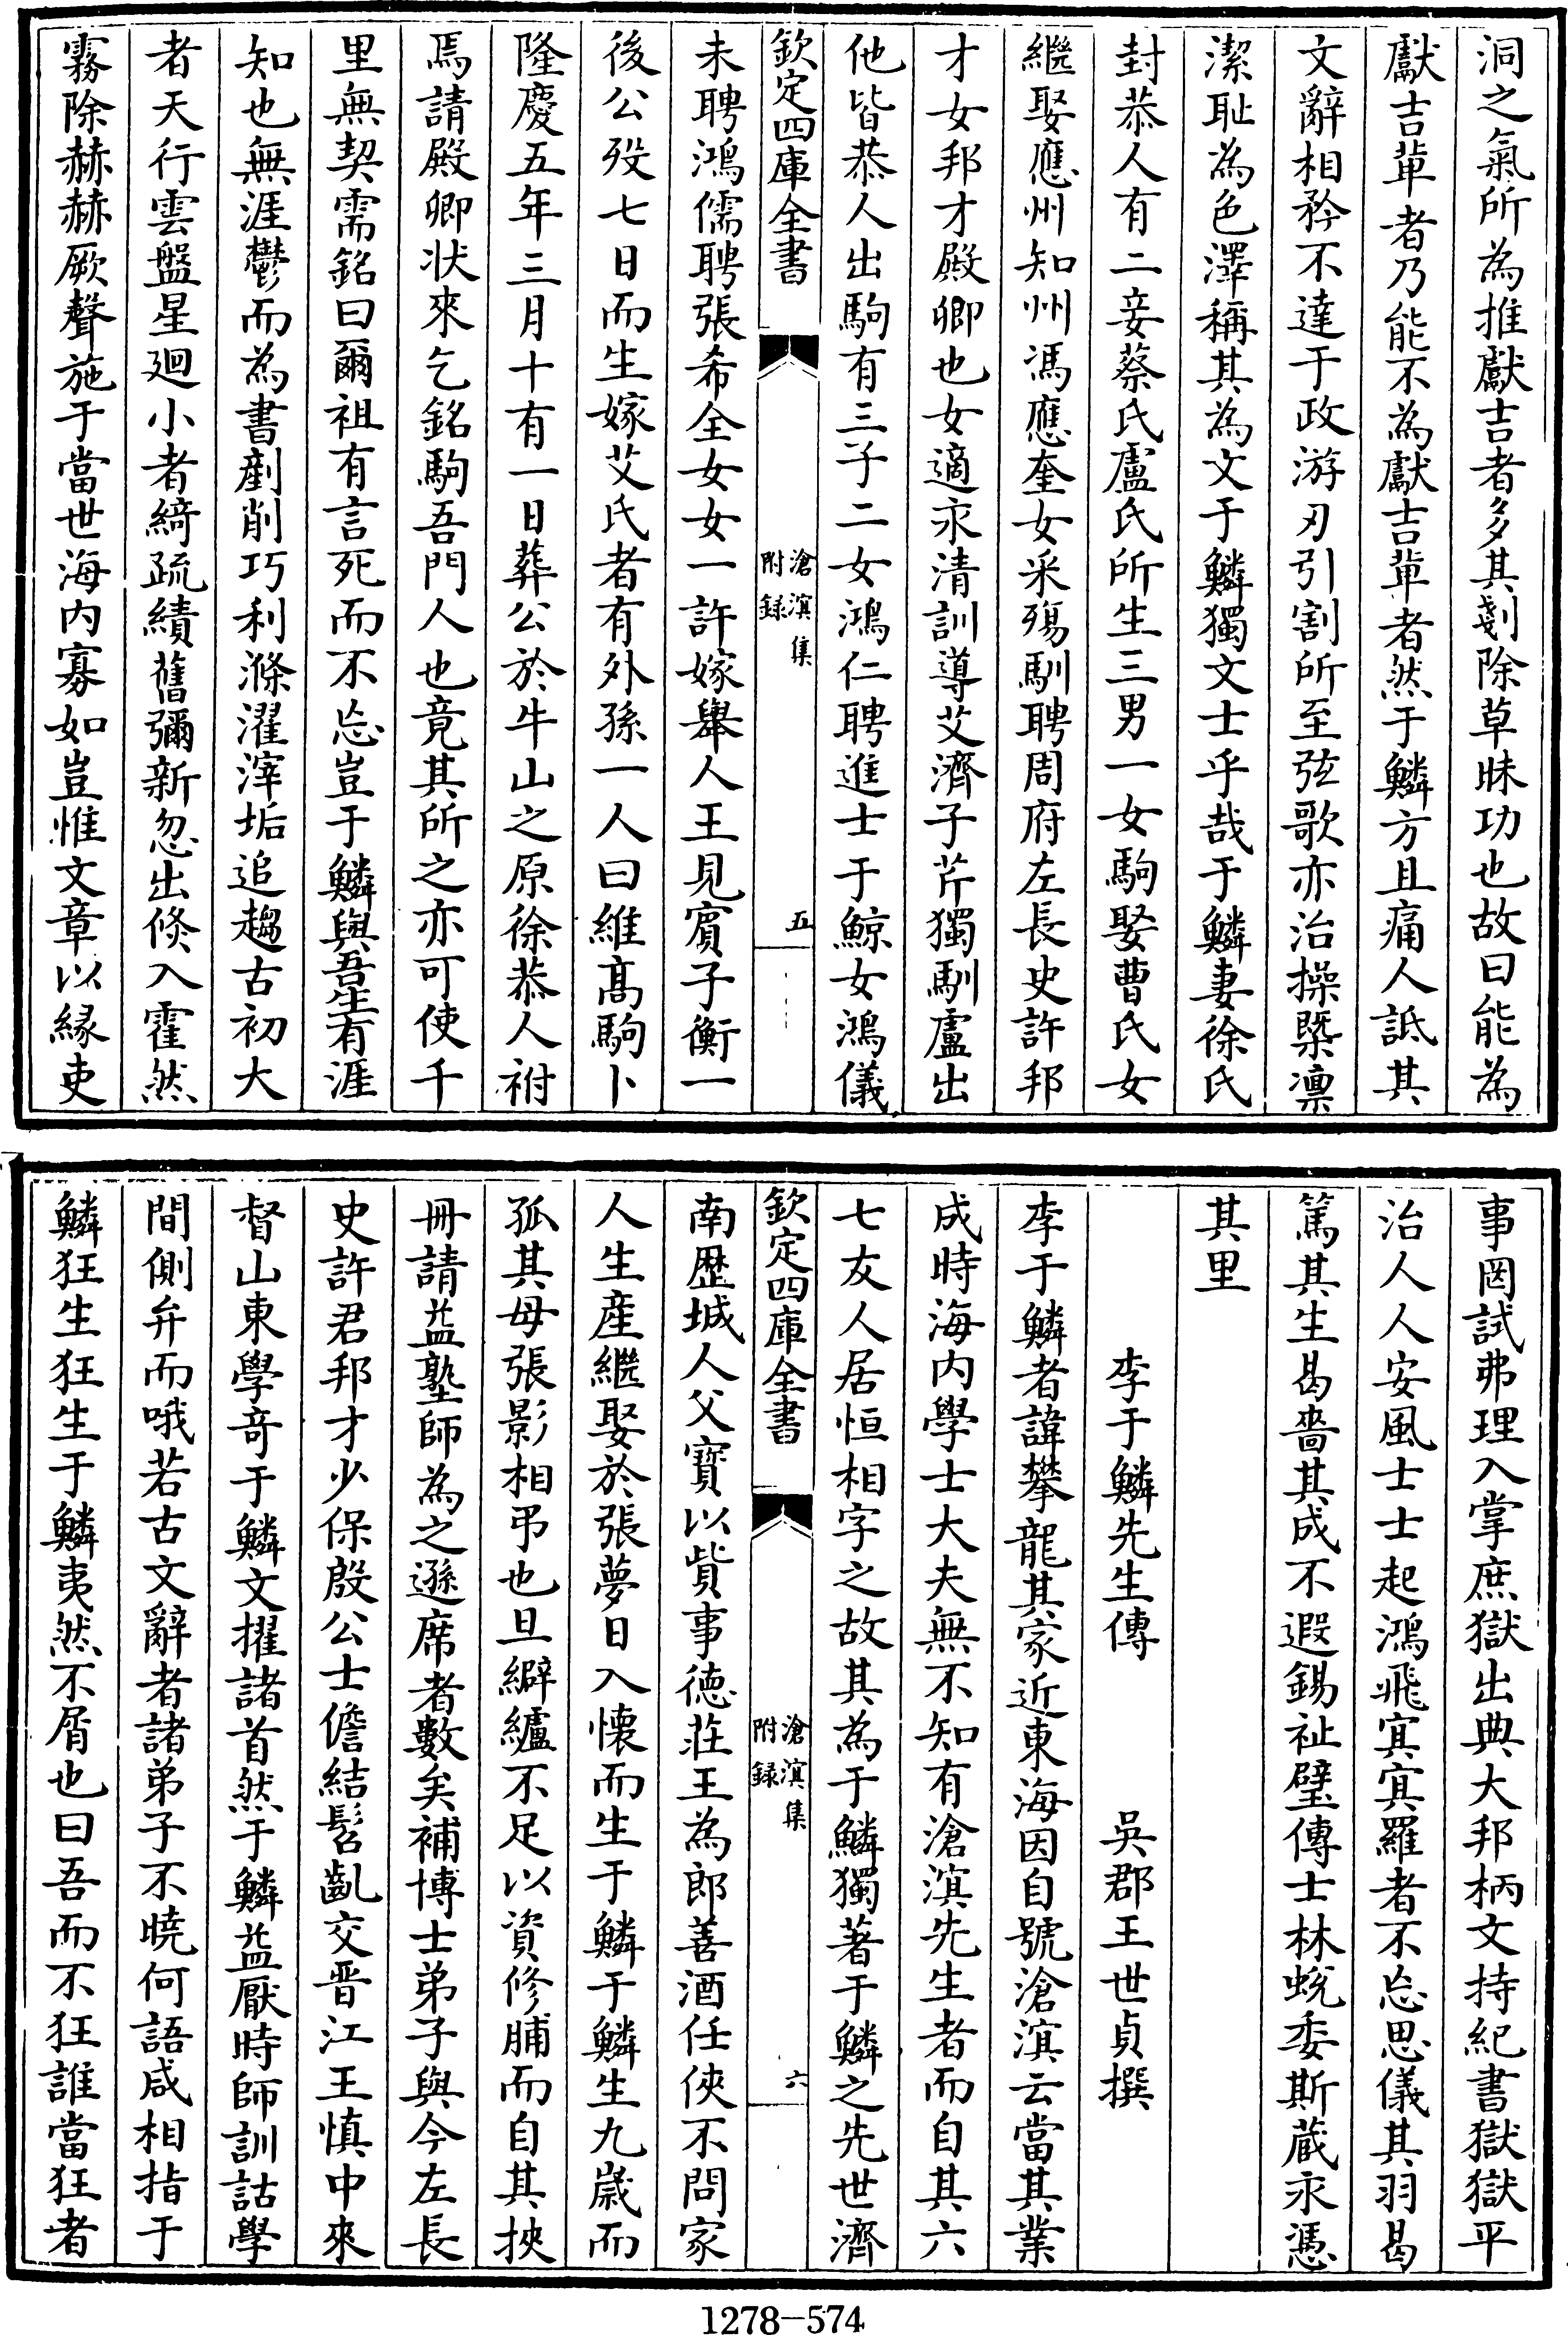 洞之氣所為推獻吉者多其剗除草昧功也故曰能為
獻吉軰者乃能不為獻吉軰者然于鱗方且痛人詆其
文辭相矜不達于政游刃引割所至弦歌亦治操槩凛
潔耻為色澤稱其為文于鱗獨文士乎哉于鱗妻徐氏
封恭人有二妾蔡氏盧氏所生三男一女駒娶曹氏女
繼娶應州知州馮應奎女采殤馴聘周府左長史許邦
才女邦才殿卿也女適永清訓導艾濟子芹獨馴盧出
他皆恭人出駒有三子二女鴻仁聘進士于鯨女鴻儀
欽定四庫全書
滄溟集
附録
五
未聘鴻儒聘張希全女女一許嫁舉人王見賓子衡一
後公殁七日而生嫁艾氏者有外孫一人曰維髙駒卜
隆慶五年三月十有一日葬公於牛山之原徐恭人祔
焉請殿卿状來乞銘駒吾門人也竟其所之亦可使千
里無契需銘曰爾祖有言死而不忘豈于鱗與吾生有涯
知也無涯鬱而為書剷削巧利滌濯滓垢追趨古初大
者天行雲盤星廻小者綺疏績舊彌新忽出倐入霍然
霧除赫赫厥聲施于當世海内寡如豈惟文章以縁吏
事罔試弗理入掌庶獄出典大邦柄文持紀書獄獄平
治人人安風士士起鴻飛㝠㝠羅者不忘思儀其羽曷
篤其生曷嗇其成不遐錫祉璧傳士林蛻委斯蔵永慿
其里
李于鱗先生傳　吳郡王世貞撰
李于鱗者諱攀龍其家近東海因自號滄溟云當其業
成時海内學士大夫無不知有滄溟先生者而自其六
七友人居恒相字之故其為于鱗獨著于鱗之先世濟
欽定四庫全書
滄溟集
附録
六
南歴城人父寳以貲事徳莊王為郎善酒任俠不問家
人生産繼娶於張夢日入懐而生于鱗于鱗生九嵗而
孤其母張影相弔也旦緶纑不足以資修脯而自其挾
冊請益塾師為之遜席者數矣補博士弟子與今左長
史許君邦才少保殷公士儋結髫齓交晋江王慎中來
督山東學竒于鱗文擢諸首然于鱗益厭時師訓詁學
間側弁而哦若古文辭者諸弟子不曉何語咸相指于
鱗狂生狂生于鱗夷然不屑也曰吾而不狂誰當狂者
1278-574